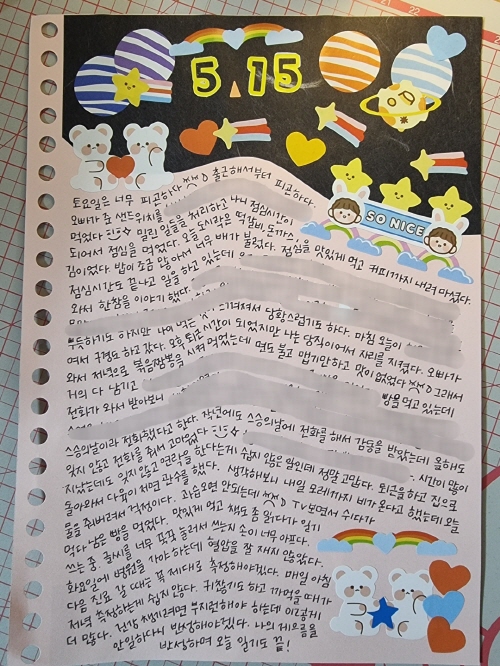 5.15
SO NICE
토요일은 너무 피곤하다 출근해서부터 피곤하다.
오빠가 준 샌드위치를 먹었다 밀린 일들을 처리하고 나니 점심시간이
되어서 점심을 먹었다. 오늘 도시락은 떡갈비, 돈까스,
김이었다. 밥이 조금 많아서 너무 배가 불렀다. 점심을 맛있게 먹고 커피까지 내려 마셨다.
점심시간도 끝나고 일을 하고 있는데
와서 한참을 이야기 했다.
뿌듯하기도 하지만 나에 당황스럽기도 하다. 마침 오늘이
여서 구경도 하고 갔다. 오후 퇴근 시간이 되었지만 나는 당직이어서 자리를 지켰다. 오빠가
와서 저녁으로 볶음짬뽕을 시켜 먹었는데 면도 불고 맵기만하고 맛이 없었다 그래서
거의 다 남기고 빵을 먹고 있는데
전화가 와서 받아보니
스승의날이라 전화했다고 한다. 작년에도 스승의날에 전화를 해서 감동을 받았는데 올해도
잊지 않고 전화를 줘서 고마웠다 시간이 많이
지났는데도 잊지않고 연락을 한다는게 쉽지 않은 일인데 정말 고맙다. 퇴근을 하고 집으로
돌아와서 다육이 저면관수를 했다. 생각해보니 내일 모레까지 비가 온다고 했는데 오늘
물을 줘버려서 걱정이다. 과습오면 안되는데 TV보면서 쉬다가
먹다 남은 빵을 먹었다. 맛있게 먹고 책도 좀 읽다가 일기
쓰는 중. 글씨를 너무 꾹꾹 눌러서 쓰는지 손이 너무 아프다.
화요일에 병원을 가야 하는데 혈압을 잘 재지 않았다.
다음 진료 갈 때는 꼭 제대로 측정해야겠다. 매일 아침
저녁 측정하는게 쉽지 않다. 귀찮기도 하고 까먹을 때가
더 많다. 건강 챙기려면 부지런해야 하는데 이렇게
안일하다니 반성해야겠다. 나의 게으름을
반성하며 오늘 일기도 끝!